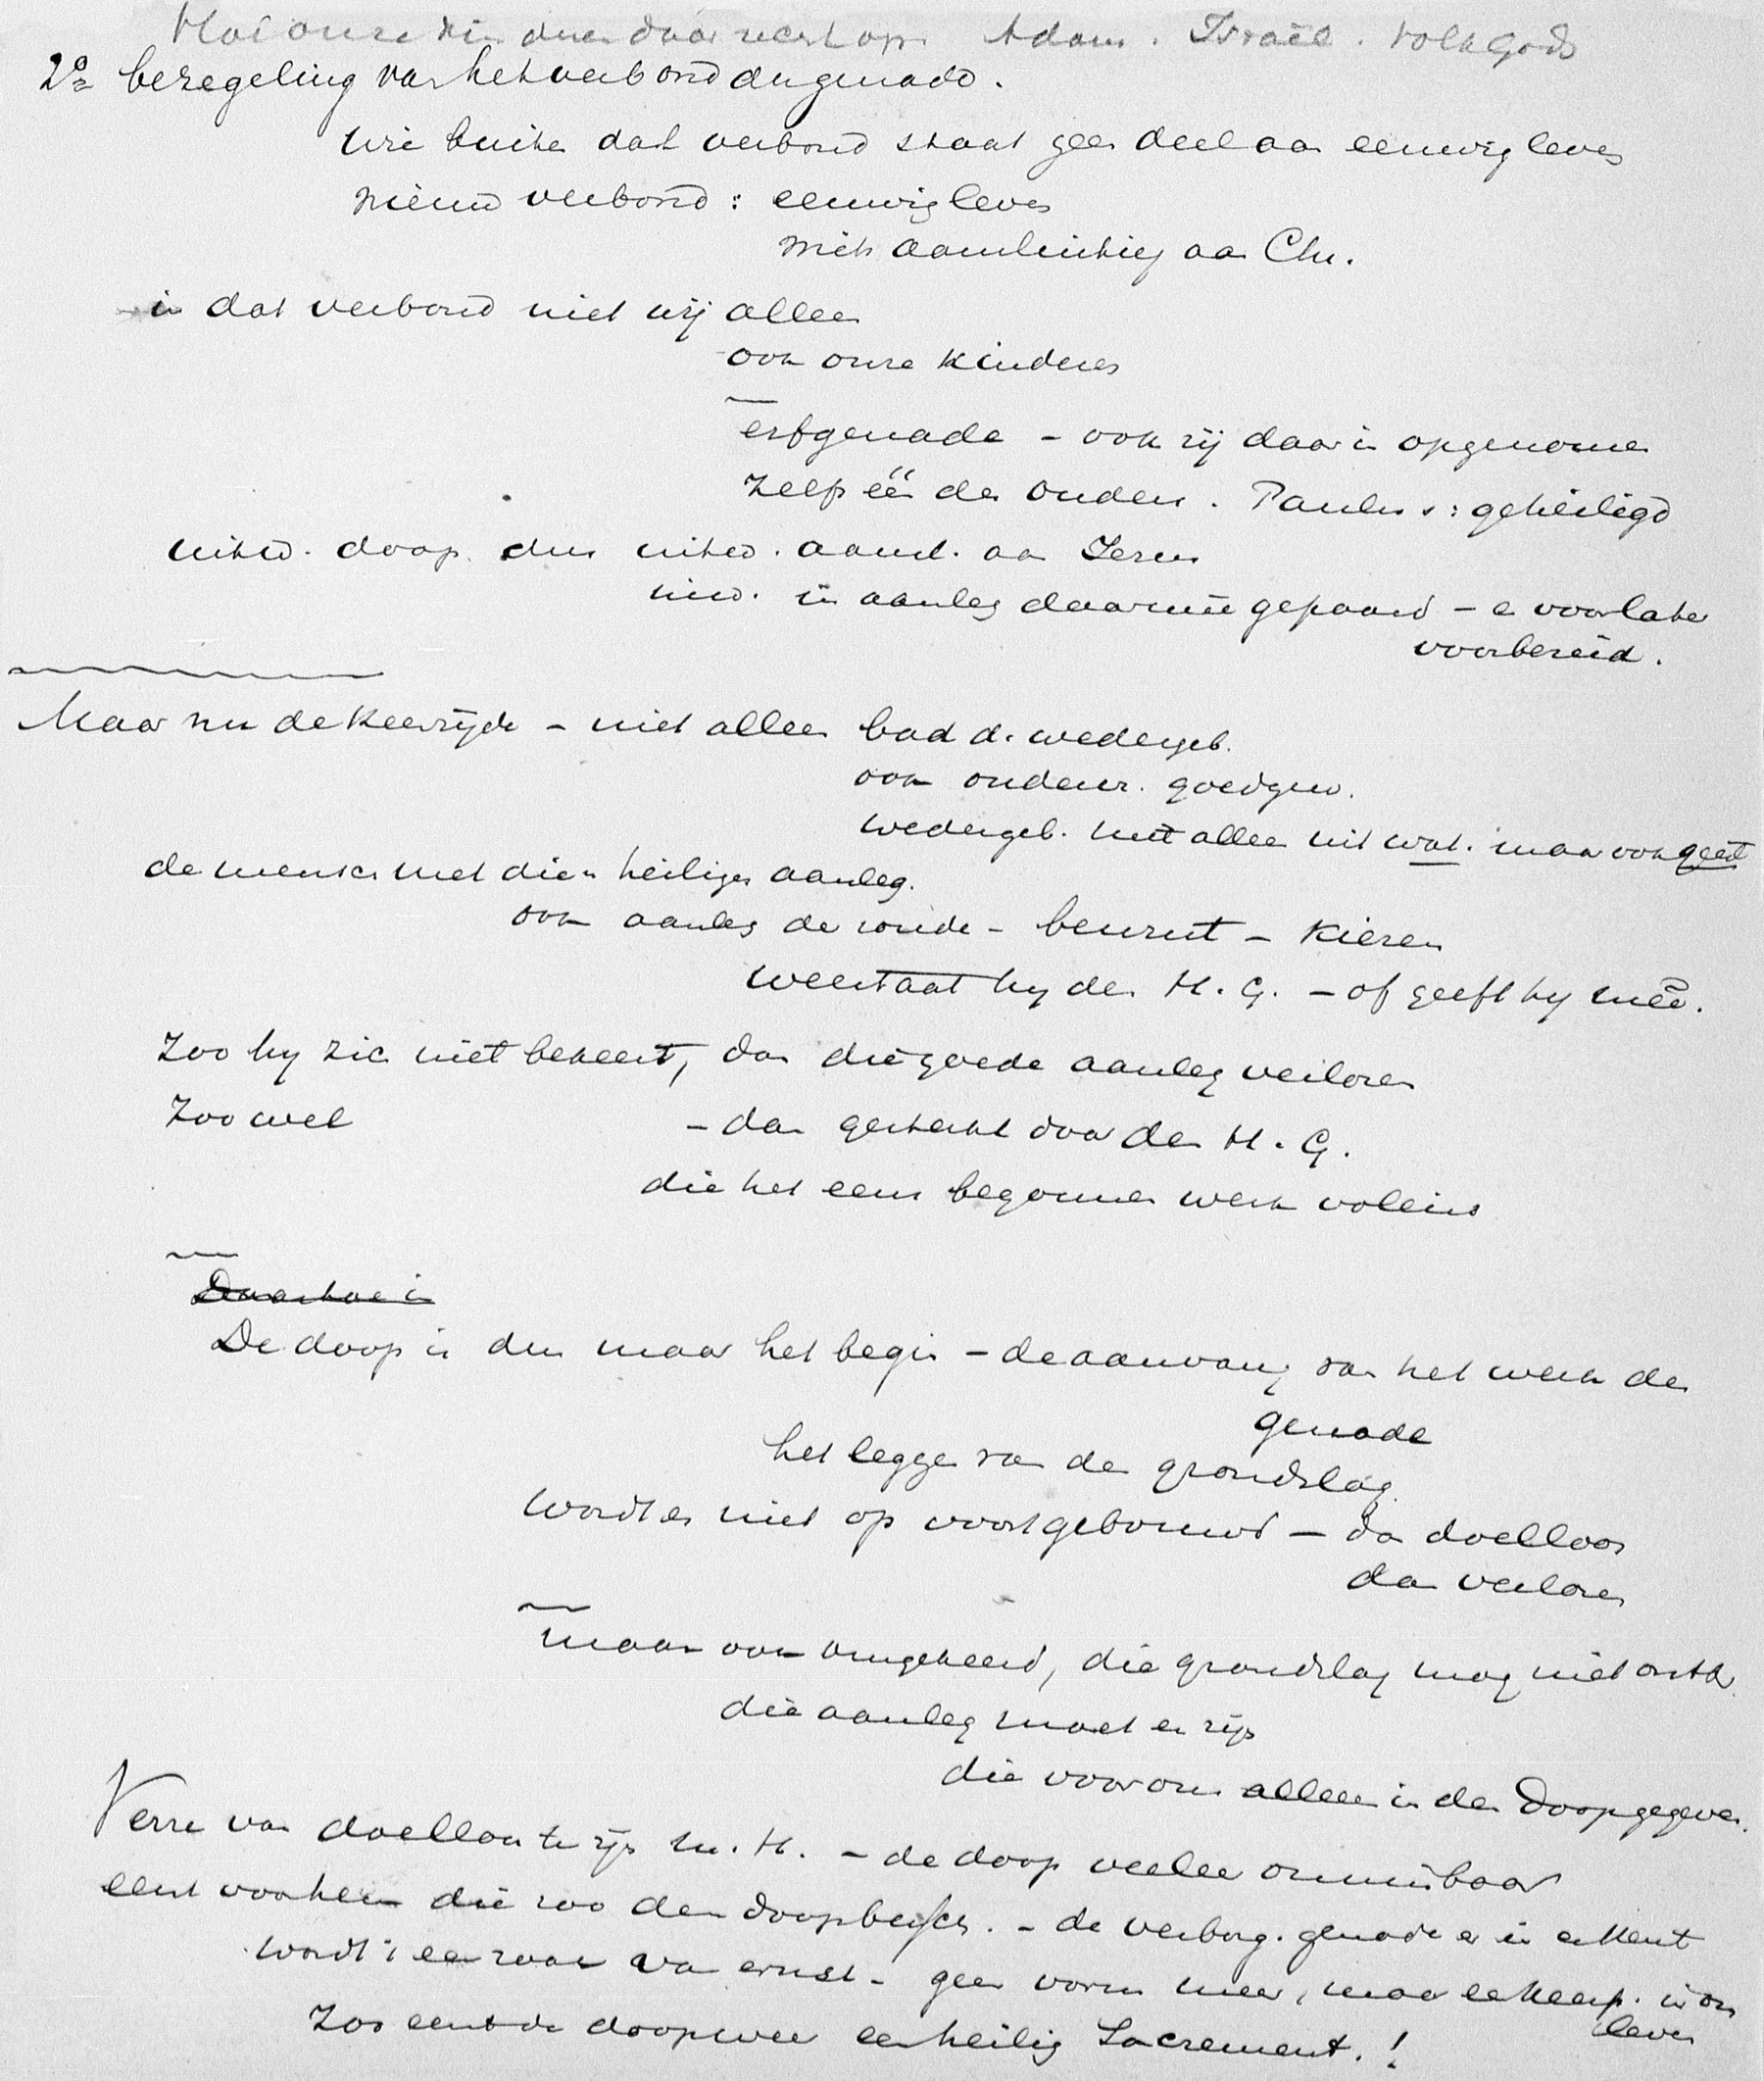 Hoe onze kinderen daar recht op. Adam. Israël. volk Gods
2º bezegeling van het verbond der genade.
Wie buiten dat verbond staat geen deel aan eeuwig leven
nieuw verbond: eeuwig leven
mits aansluiting aan Chr.
in dat verbond niet wij alleen
ook onze kinderen
erfgenade - ook zij daarin opgenomen
Zelfs één der ouders. Paulus: geheiligd
uitw. doop. dus uitw. aansl. aan Jezus
inw. in aanleg daarmee gepaard - en voor later
voorbereid.
Maar nu de keerzijde - niet alleen bad d. wedergeb.
ook onderw. goedgew.
wedergeb. niet alleen uit wat. maar ook geest
de mensch met dien heiligen aanleg.
ook aanleg der zonde - bewust - kiezen
weerstaat hy den H. G. - of geeft hy mêe.
Zoo hy zich niet bekeert, dan die goede aanleg verloren
Zoo wel - dan gesterkt door den H. G.
die het eens begonnen werk voleind
Daartoe is
De doop is dus maar het begin - de aanvang van het werk der
genade
het leggen van den grondslag.
Wordt er niet op voortgebouwd - dan doelloos
dan verloren
maar ook omgekeerd, die grondslag mag niet ontbr.
die aanleg moet er zijn
die voor ons alleen in den Doop gegeven.
Verre van doelloos te zijn m. H. - de doop veeleer onmisbaar
eerst voor hem die zoo den doop besch. - de verborg. genade er in erkent
wordt 't een zaak van ernst - geen vorm meer, maar een in ons
leven
Zoo eerst de doop weer een heilig Sacrement.!